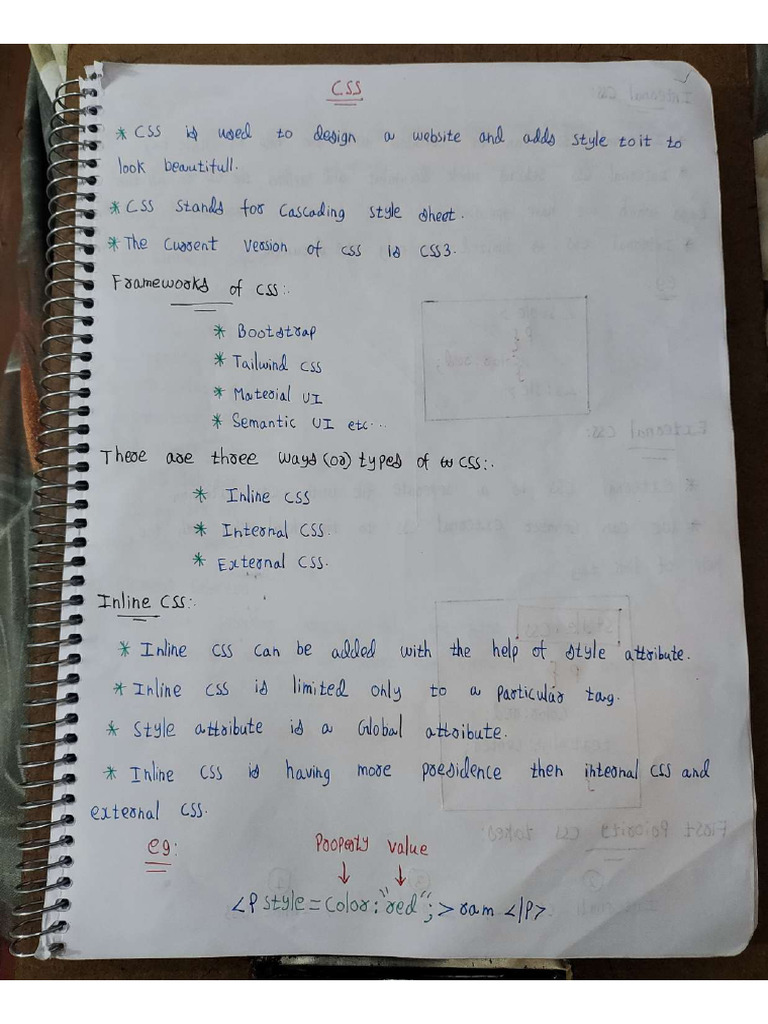 CSS
* CSS is used to design a website and adds style to it to
look beautifull.
* CSS stands for Cascading style sheet.
* The Current Version of CSS is CSS3.
Frameworks of CSS:.
* Bootstrap
* Tailwind CSS
* Material UI
* Semantic UI etc...
There are three ways (or) types of CSS:.
* Inline CSS
* Internal CSS.
* External CSS.
Inline CSS:.
* Inline CSS can be added with the help of style attribute.
* Inline CSS is limited only to a particular tag.
* Style attribute is a Global attribute.
* Inline CSS is having more presidence then internal CSS and
external CSS.
eg:
Property value
↓ ↓
<P style = Color: "red"; > ram </P>